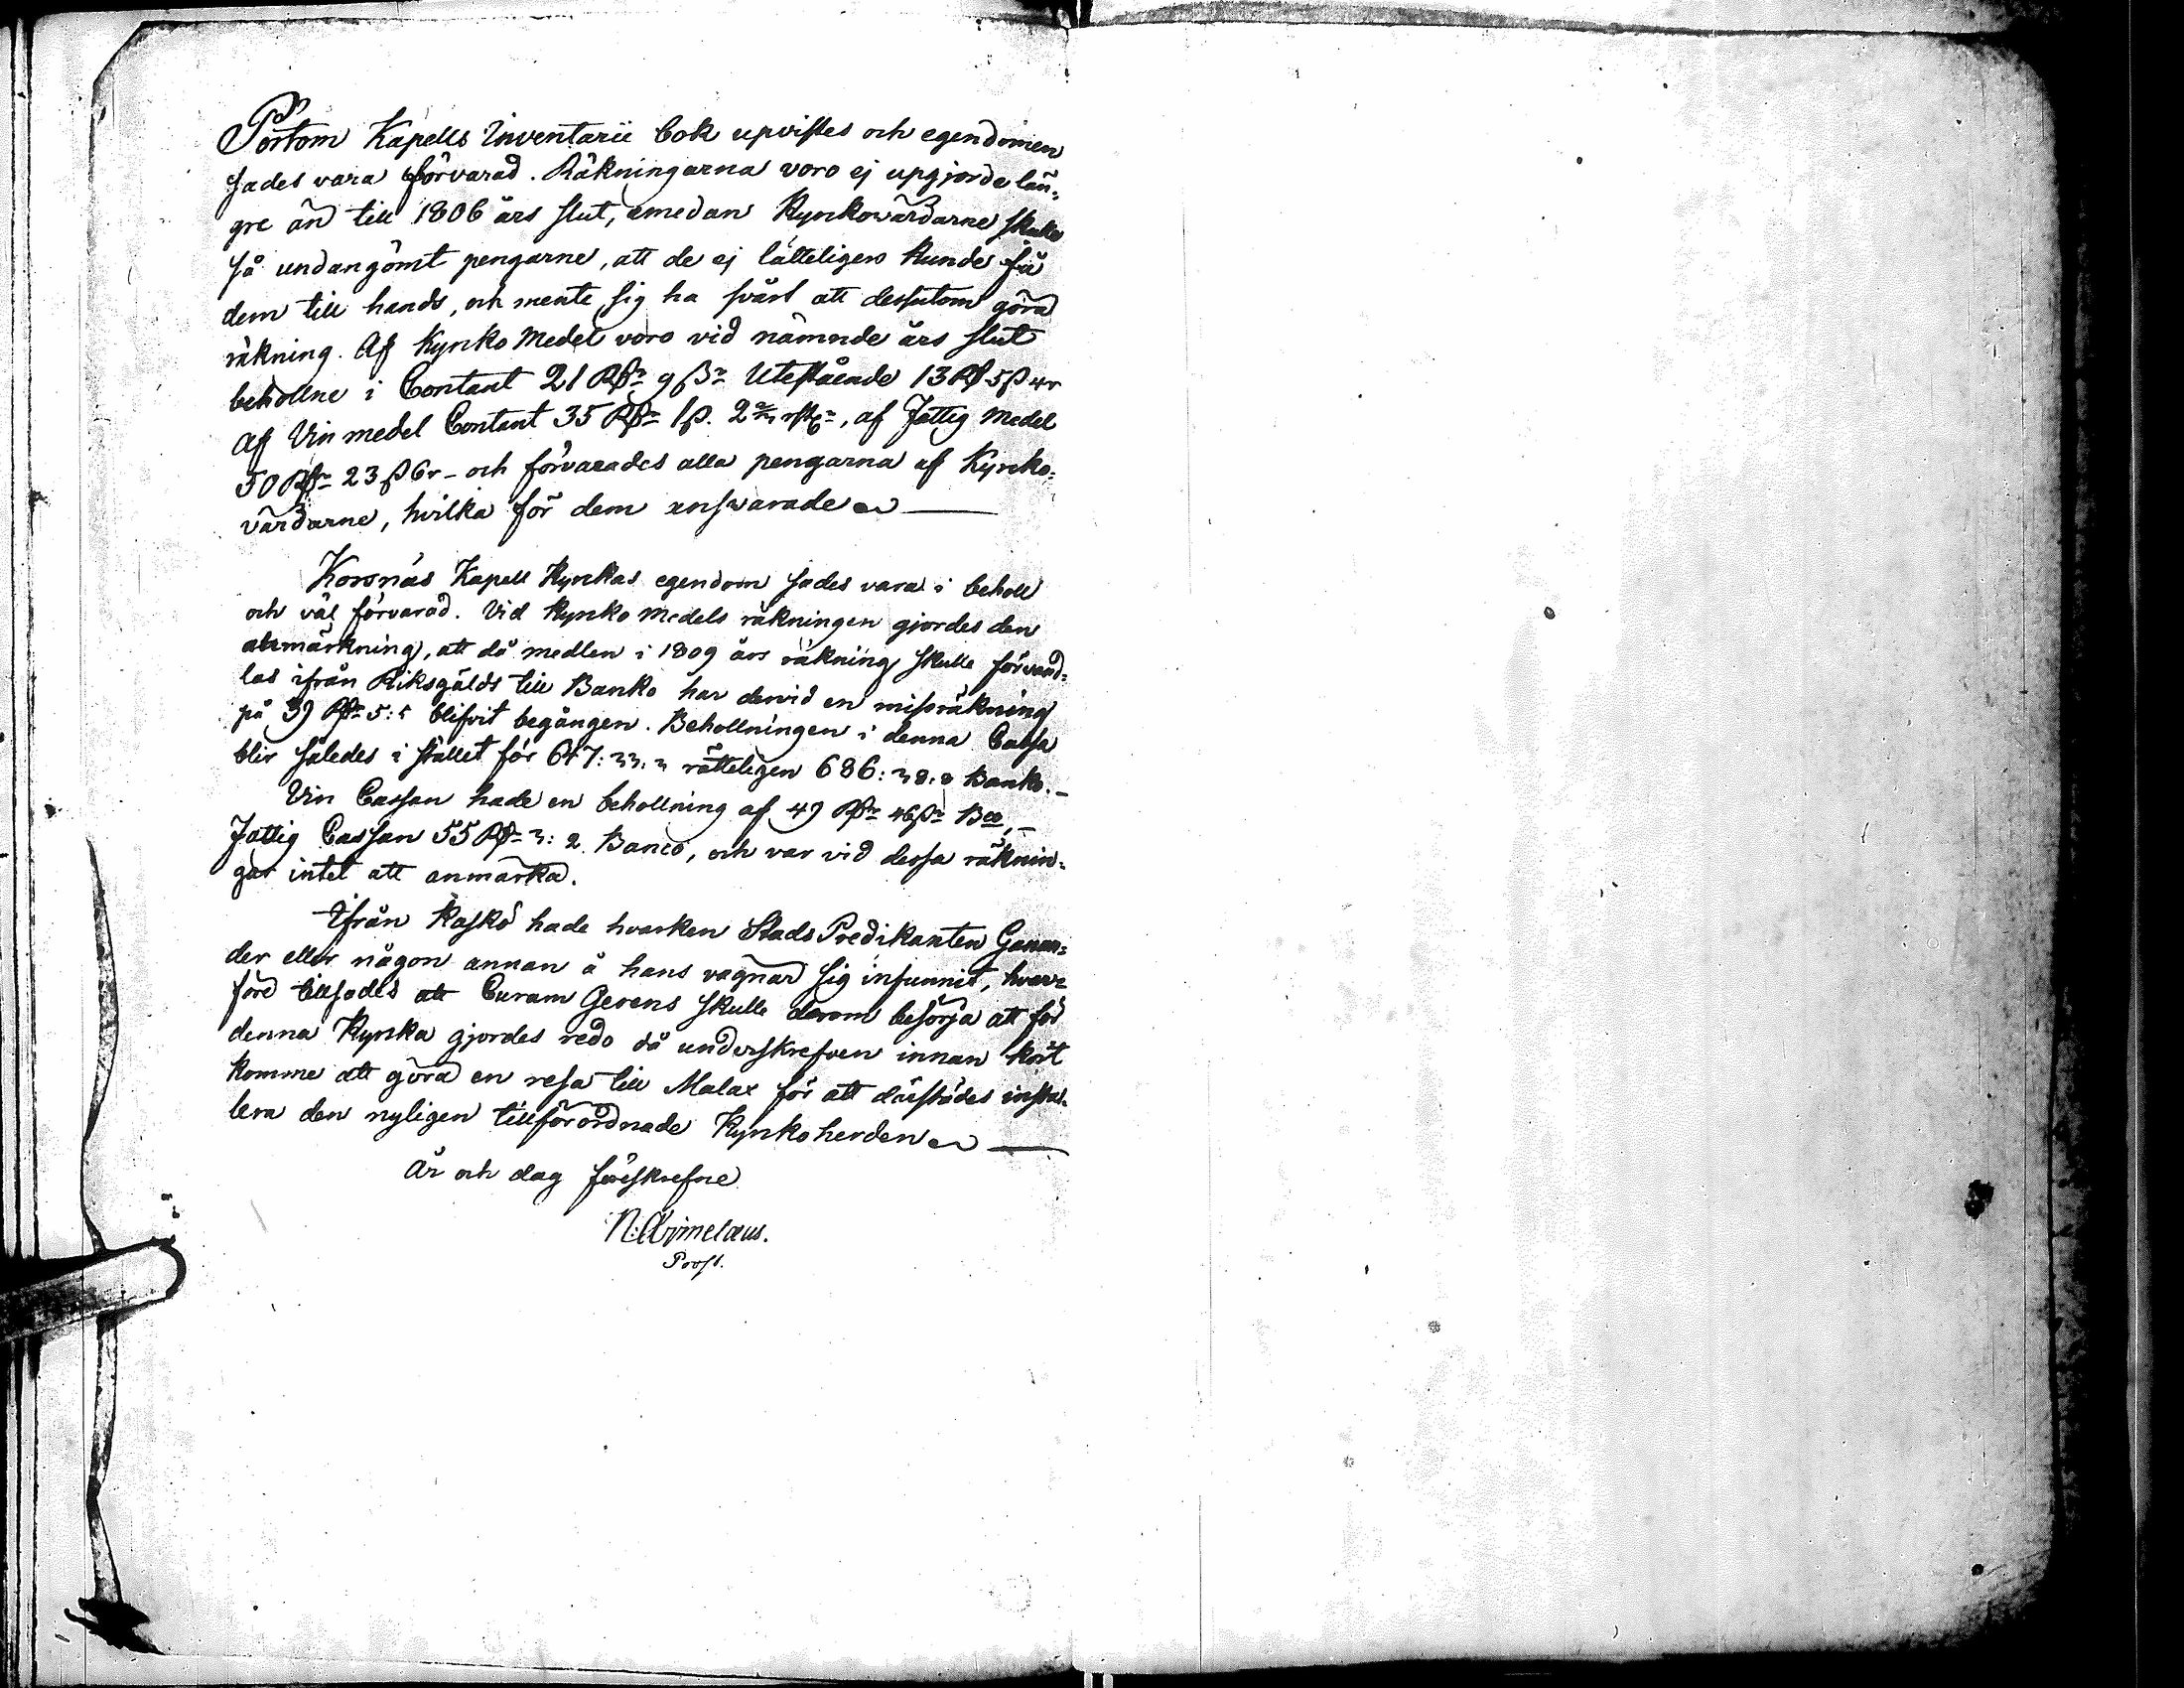 Pörtom Kapells Inventarii bok upvistes och egendomen
sades vara förvarad. Räkningarna voro ej upgjorde län-
gre än till 1806 års slut, emedan Kyrkowärdarne skulle
så undangömt pengarne, att de ej lätteligen kunde få
dem till hands, och mente sig ha svårt att dessutom göra
räkning. Af Kyrko Medel voro vid nämnde års slut
behollne i Contant 21 Rdr 9 ß Utestående 13 Rd 5 ß 4 r
Af Vin medel Contant 35 Rdr 1 ß. 2 , af Fattig Medel
50 Rdr 23 ß 6 r - och förvarades alla pengarna af Kyrko-
värdarne, hvilka för dem answarade
Korsnäs Kapell Kyrkas egendom sades vara i beholl
och väl förvarad. Vid Kyrko Medels räkningen gjordes den
anmärkning, att då medlen i 1809 års räkning skulle förvand-
las ifrån Riksgälds till Banko har dervid en missräkning
på 39 Rdr 5: 5 blifvit begången. Behollningen i denna Cassa
blir således i stället för 647: 33. 3 rätteligen 686: 38. 8 Banko.-
Vin Cassan hade en behollning af 49 Rdr 46 ß Bco,-
Fattig Cassan 55 Rdr 3: 2. Banco, och var vid dessa räknin-
gar intet att anmärka.
Ifrån Kaskö hade hvarken Stads Predikanten Ganan-
der eller någon annan å hans vägnar sig infunnit, hvar-
före tillsades att Curam Gerens skulle derom besörja att för
denna Kyrka gjordes redo då underskrefven innan kort
komme att göra en resa till Malax för att därstädes instal-
lera den nyligen tillförordnade Kyrkoherden
År och dag förskrefne
N: Arimelæus.
Prost.